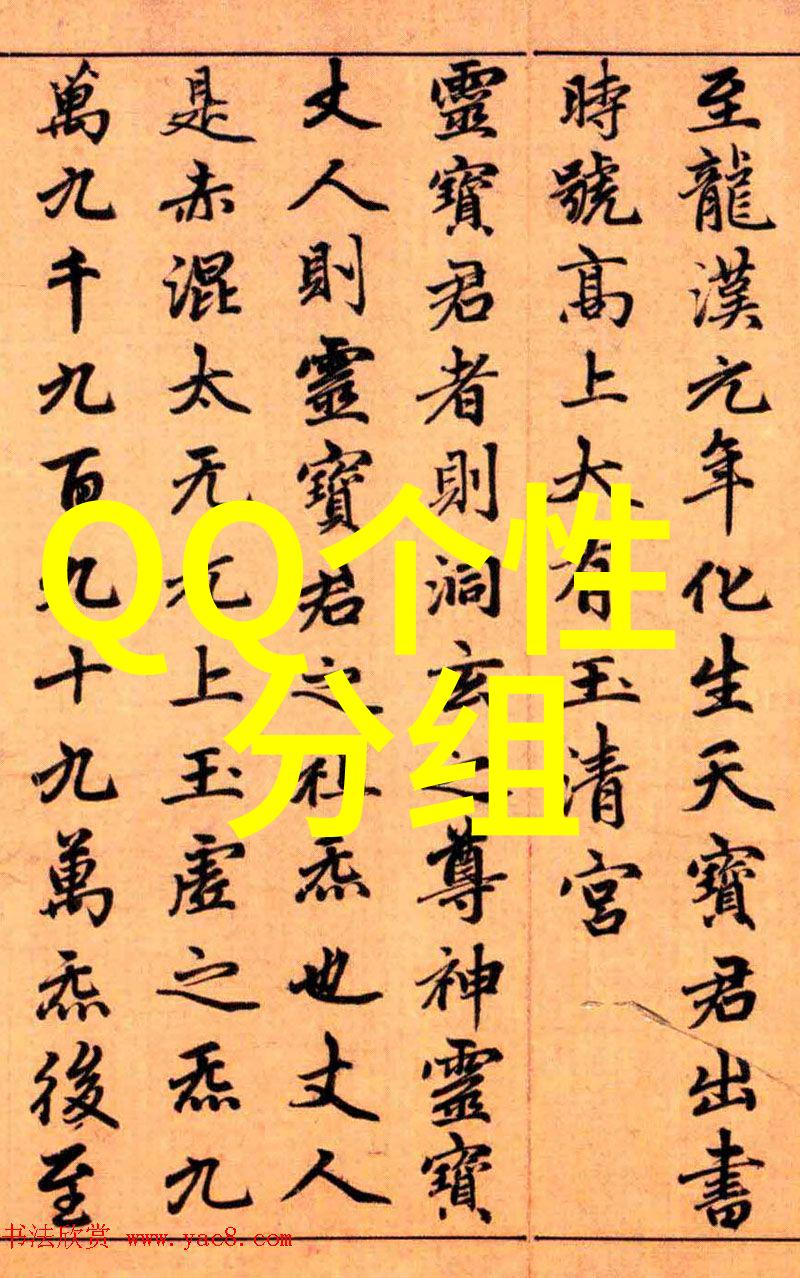 至龍漢元年化生天寶君出書
時號高上大有玉清宮
靈寶君者則洞玄之尊神靈寶
丈人則靈寶君之祖炁也丈人
是赤混太无元上玉虛之炁九
萬九千九百九十九萬炁後至
QQ个性
分组
书法欣赏 www.yac8.com